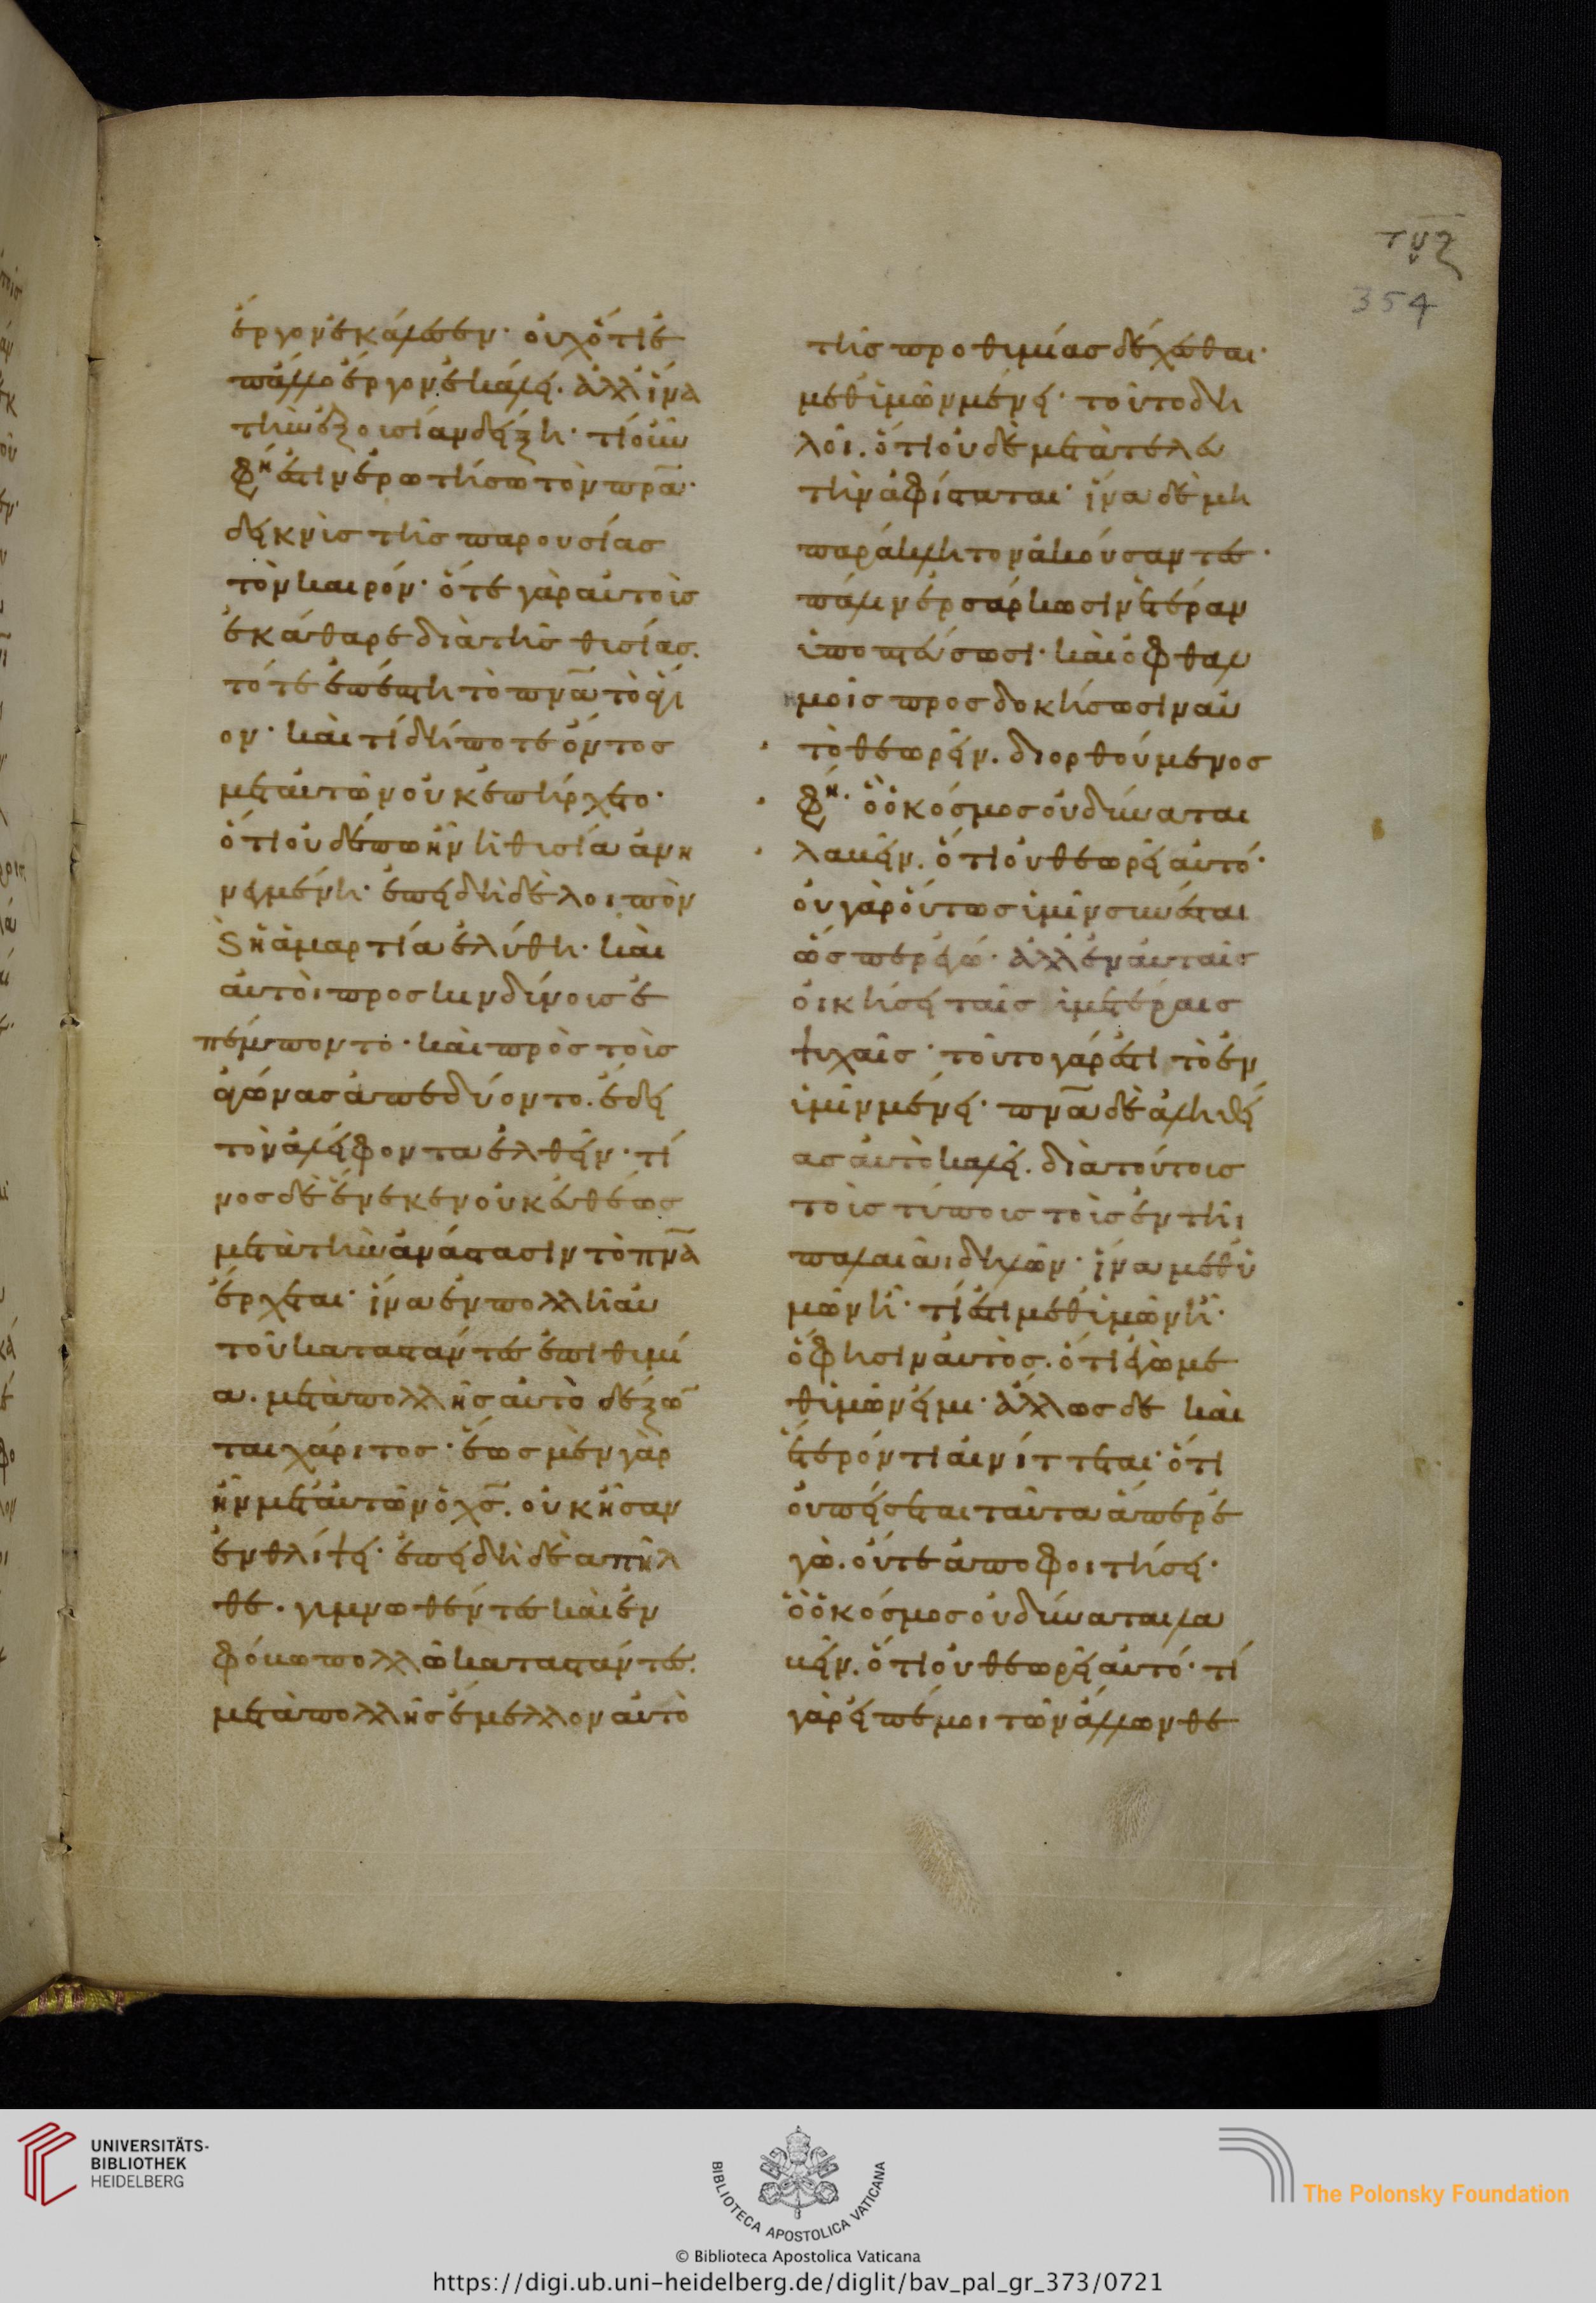 ἔργον ἐκάλεσεν· οὐχ ὅτι ἐ
πάλλο ἔργον ἐκάλει· ἀλλ ἵνα
τὴν ἐξουσίαν δείξη· τί οὖν
φη ἐστιν ἐρωτήσω τὸν πρα·
δείκνυσ τῆς παρουσίας
τὸν καιρόν· ὅτε γὰρ αὐτοὺς
ἐκάθαρε διὰ τῆς θυσίας·
τότε ἐπέπτη τὸ πνα τὸ ἅγι
ον· καὶ τί δήποτε ὄντος
μετ αὐτῶν οὐκ ἐπήρχετο·
ὅτι οὐδέπω ἦν ἡ θυσία ἀνη
νεγμένη· ἐπειδὴ δὲ λοιπὸν
ϗ ἡ ἁμαρτία ἐλύθη· καὶ
αὐτοὶ προς κινδύνους ἐ
πέμποντο· καὶ πρὸς τοὺς
ἀγώνας ἀπεδύοντο· ἔδει
τὸν ἀλείφοντα ἐλθεῖν· τί
νος δὲ ἕνεκεν οὐκ εὐθέως
μετὰ τὴν ἀνάστασιν τὸ πνα
ἔρχεται· ἵνα ἐν πολλῆ αὐ
τοῦ καταστάντες ἐπιθυμί
α· μετὰ πολλῆς αὐτὸ δέξων
ται χάριτος· ἕως μὲν γὰρ
ἦν μετ αὐτῶν ὁ χς· οὐκ ἦσαν
ἐν θλίψει· ἐπειδὴ δὲ απῆλ
θε· γυμνωθέντες καὶ ἐν
φόβω πολλῶ καταστάντες·
μετὰ πολλῆς ἔμελλον αὐτὸ
τῆς προθυμίας δέχεσθαι·
μεθ ὑμῶν μένει· τοῦτο δη
λοῖ· ὅτι οὐδὲ μετὰ τελευ
τὴν ἀφίσταται· ἵνα δὲ μὴ
παράκλητον ἀκούσαντες·
πάλιν ἐνσάρκωσιν ἑτέραν
ὑποπτεύσωσι· καὶ ὀφθαλ
μοῖς προσδοκήσωσιν αὐ
τὸ θεωρεῖν· διορθούμενος
φη· ὃ ὁ κόσμος οὐ δύναται
λαβεῖν· ὅτι οὐ θεωρεῖ αὐτό·
οὐ γὰρ οὕτως ὑμῖν συνέσται
ὥσπερ ἐγώ· ἀλλ ἐν αὐταῖς
οἰκήσει ταῖς ὑμετέραις
ψυχαῖς· τοῦτο γάρ ἐστι τὸ ἐν
ὑμῖν μένει· πνα δὲ ἀληθεί
ας αὐτὸ καλεῖ· διὰ τούτοις
τοὺς τύπους τοὺς ἐν τῆι
παλαιᾶι δηλῶν· ἵνα μεθ ὑ
μῶν ῆ· τί ἐστι μεθ ὑμῶν ῆ·
ὅ φησιν αὐτὸς· ὅτι ἐγὼ με
θ ὑμῶν εἰμι· ἄλλως δε καὶ
ἕτερόν τι αἰνίττεται· ὅτι
οὐ πείσεται ταῦτα ἅπερ ἐ
γὼ· οὔτε ἀποφοιτήσει·
ὃ ὁ κόσμος οὐ δύναται λα
βεῖν· ὅτι οὐ θεωρεῖ αὐτό· τί
γὰρ εἰπέ μοι τῶν ἄλλων θε
τνζ
354
UNIVERSITÄTS-
BIBLIOTHEK
HEIDELBERG
BIBLIOTECA APOSTOLICA VATICANA
The Polonsky Foundation
© Biblioteca Apostolica Vaticana
https://digi.ub.uni-heidelberg.de/diglit/bav_pal_gr_373/0721